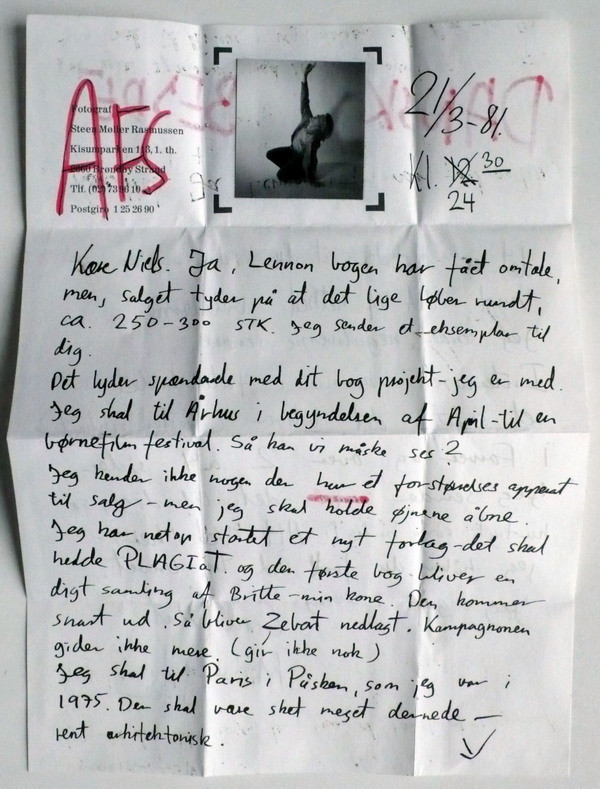 Fotograf
Steen Møller Rasmussen
Kisumparken 113, 1. th.
2660 Brøndby Strand
Tlf. (02) 73 96 10
Postgiro 1 25 26 90
AFS
21/3-81.
kl. 12 30
24
Kære Niels. Ja, Lennon bogen har fået omtale,
men, salget tyder på at det lige løber rundt,
ca. 250-300 STK. Jeg sender et eksemplar til
dig.
Det lyder spændende med dit bog projekt-jeg er med.
Jeg skal til Århus i begyndelsen af April-til en
børnefilm festival. Så kan vi måske ses?
Jeg kender ikke nogen der har et forstørrelses apparat
til salg-men jeg skal holde øjnene åbne.
Jeg har netop startet et nyt forlag-det skal
hedde PLAGIAT. og den første bog bliver en
digt samling af Britte-min kone. Den kommer
snart ud. Så bliver Zebat nedlagt. Kampagnonen
gider ikke mere. (gir ikke nok)
Jeg skal til Paris i Påsken, som jeg var i
1975. Der skal være sket meget dernede —
rent arkitektonisk.